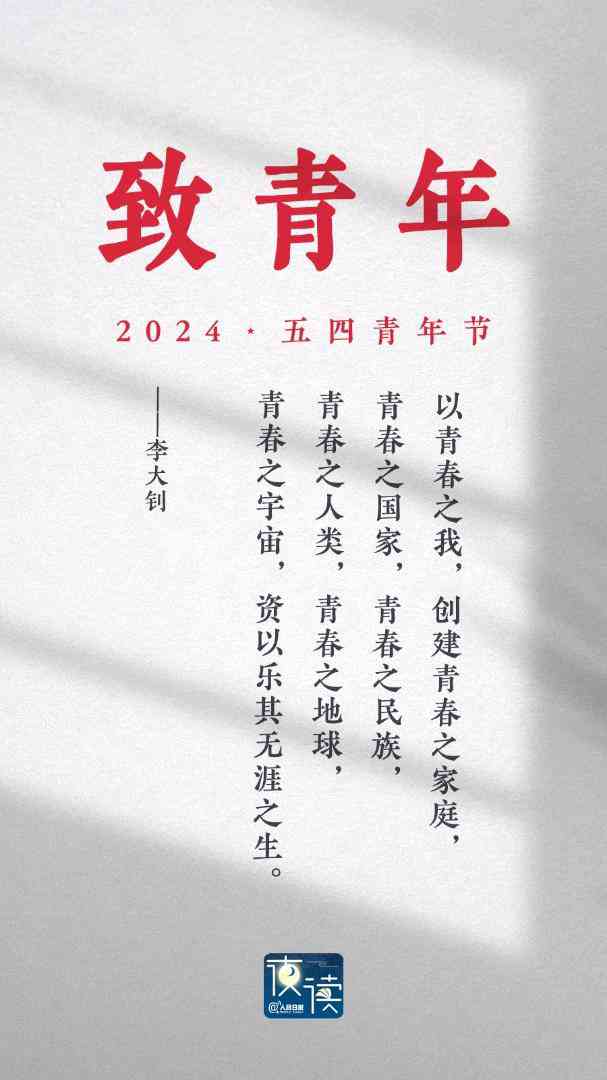 致青年
2024·五四青年节
以青春之我，创建青春之家庭，
青春之国家，青春之民族，
青春之人类，青春之地球，
青春之宇宙，资以乐其无涯之生。
——李大钊
夜读
@人民日报